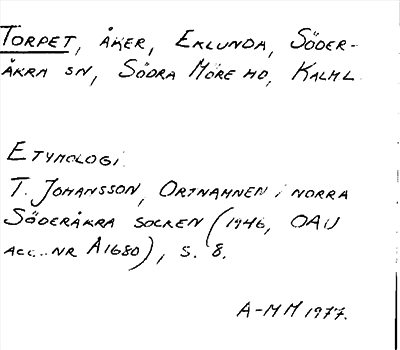 TORPET, ÅKER, EKLUNDA, SÖDER-
ÅKRA SN, SÖDRA MÖRE HD, KALM L.
ETYMOLOGI:
T. JOHANSSON, ORTNAMNEN I NORRA
SÖDERÅKRA SOCKEN (1946, OAU
ACC.-NR A1680), S. 8.
A-MM 1977.